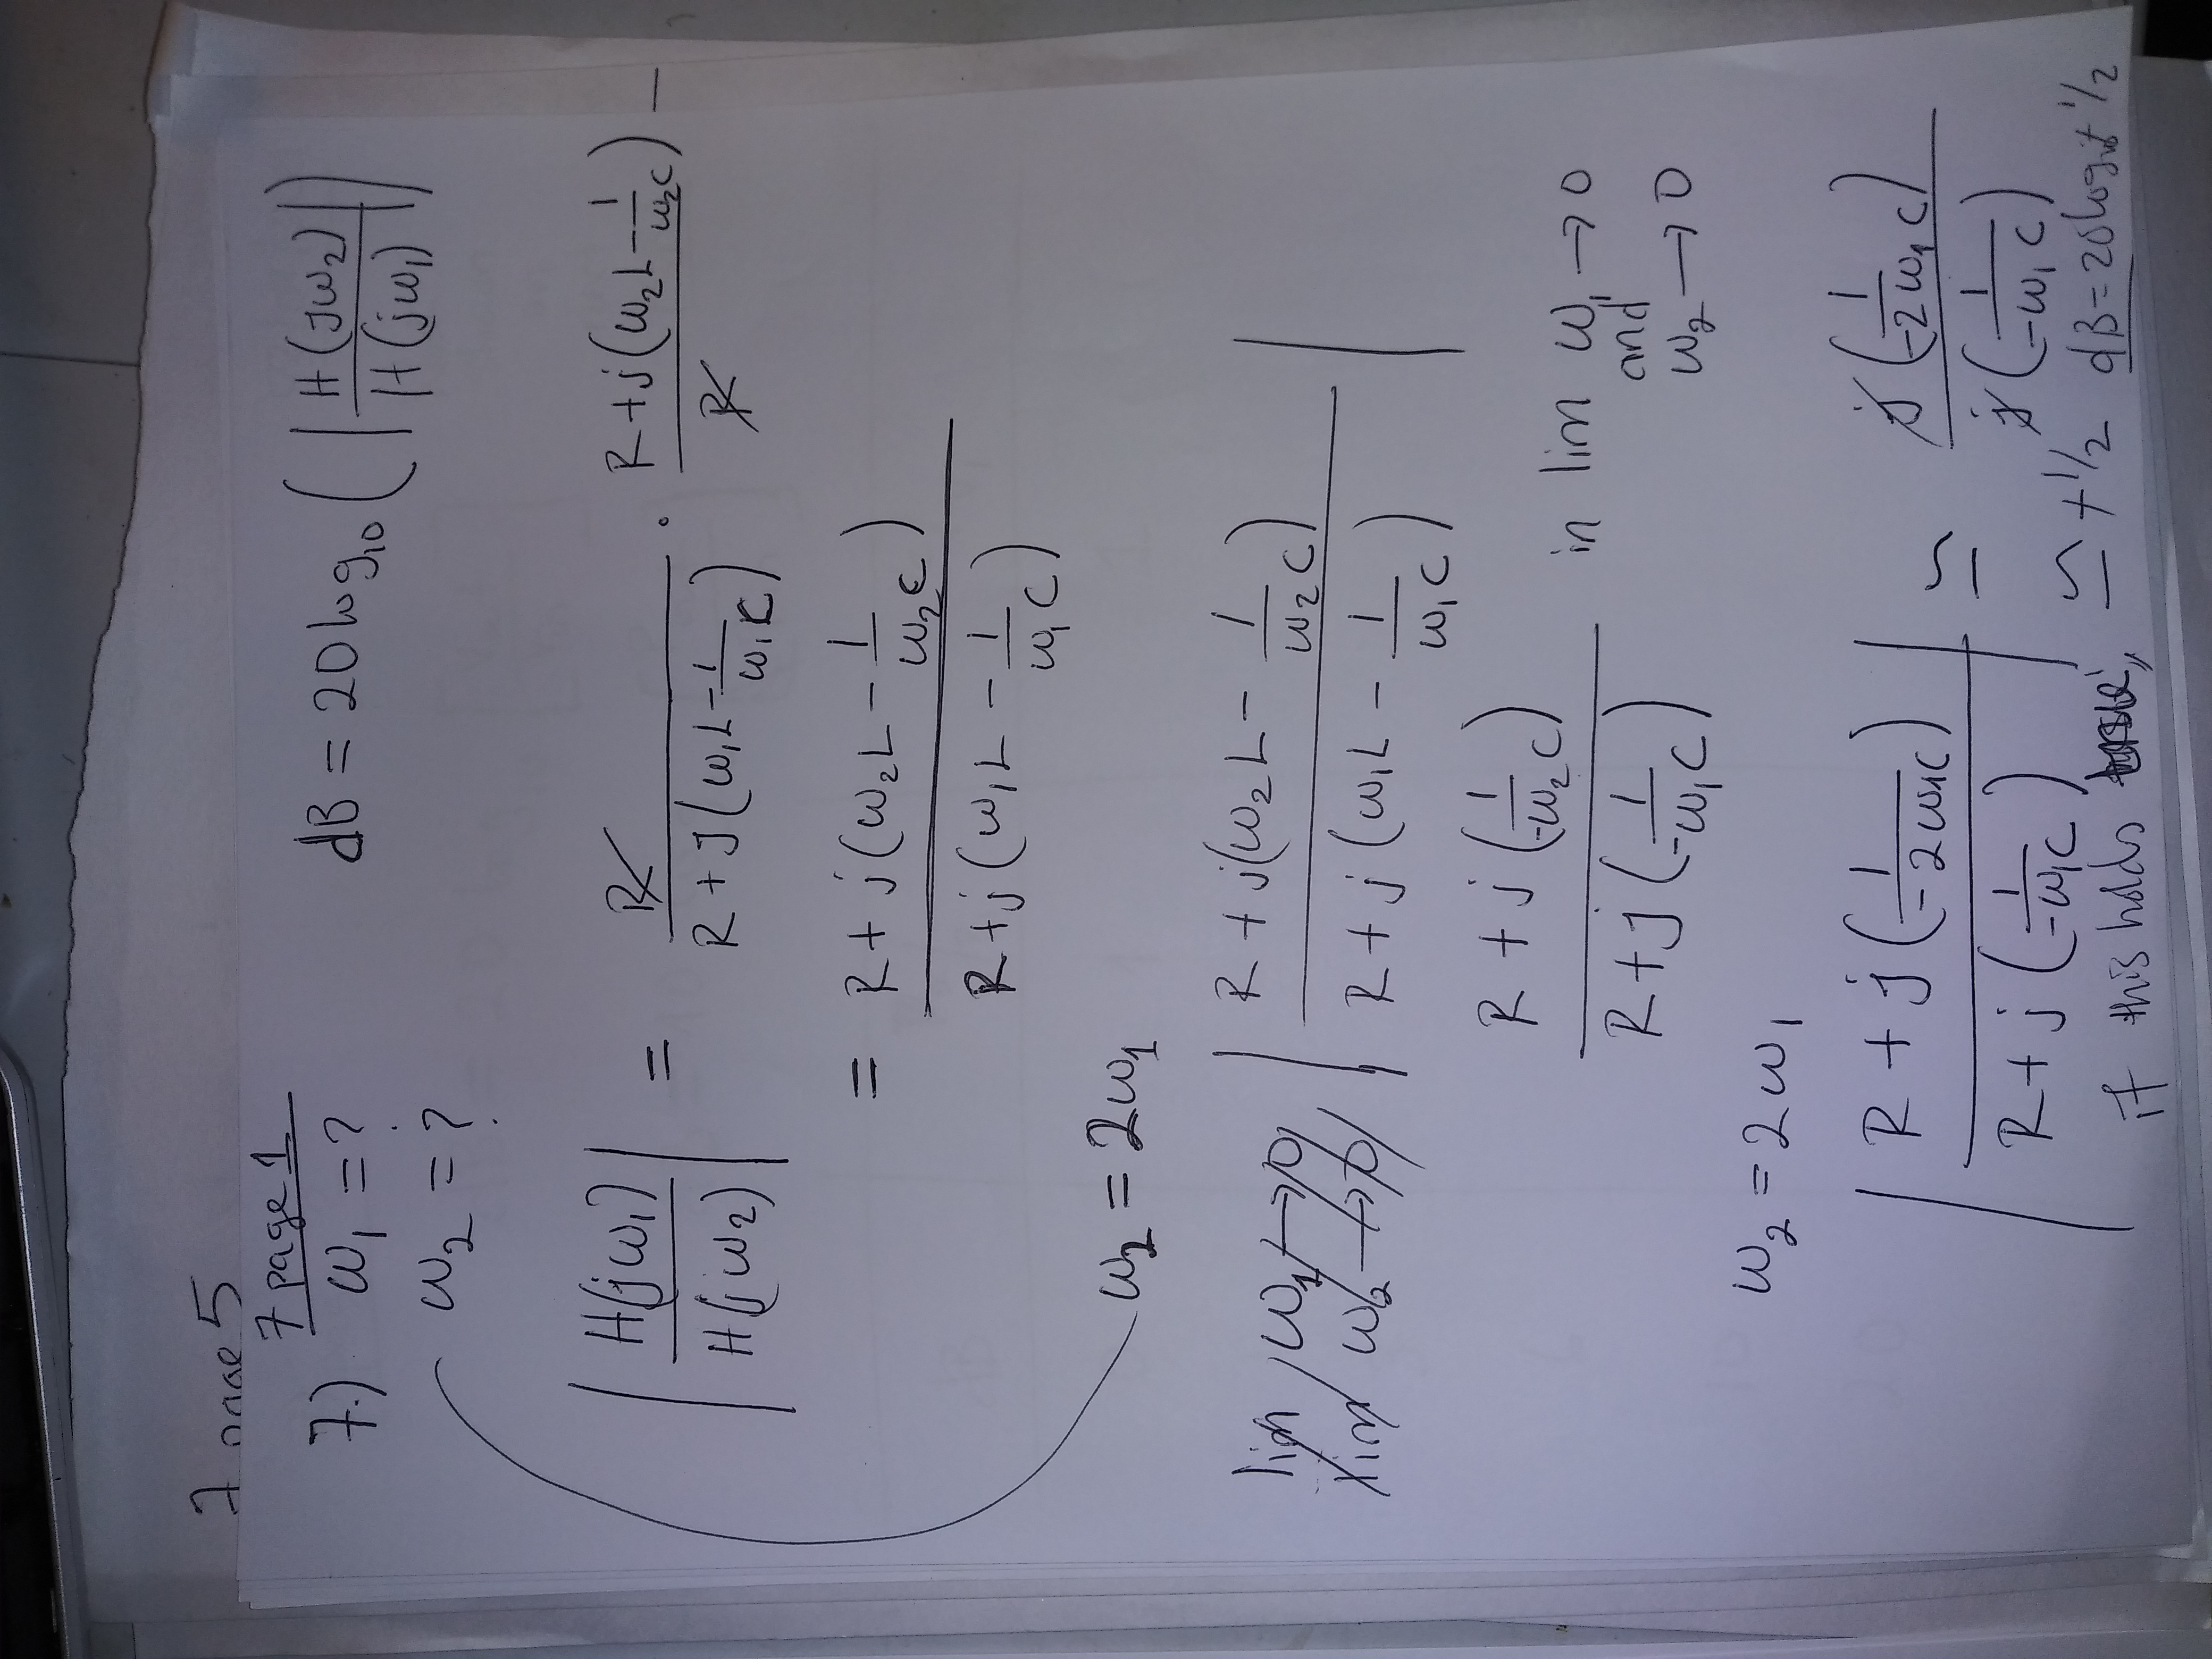 7 page 5
7 page 1
7.) ω₁ = ?
dB = 20 log₁₀ ( | H(jω₂) / H(jω₁) | )
ω₂ = ?
| H(jω₁) / H(jω₂) | = R / (R + j(ω₁L - 1/(ω₁C))) · (R + j(ω₂L - 1/(ω₂C))) / R -
= (R + j(ω₂L - 1/(ω₂C))) / (R + j(ω₁L - 1/(ω₁C)))
ω₂ = 2ω₁
lim ω₁ → 0
lim ω₂ → 0
| (R + j(ω₂L - 1/(ω₂C))) / (R + j(ω₁L - 1/(ω₁C))) |
(R + j(1/(-ω₂C))) / (R + j(1/(-ω₁C))) in lim ω₁ → 0
and
ω₂ → 0
ω₂ = 2ω₁
| (R + j(1/(-2ω₁C))) / (R + j(1/(-ω₁C))) | ≃ j(1/(-2ω₁C)) / j(1/(-ω₁C))
if this holds true, ≃ +1/2 dB = 20 log₁₀ + 1/2